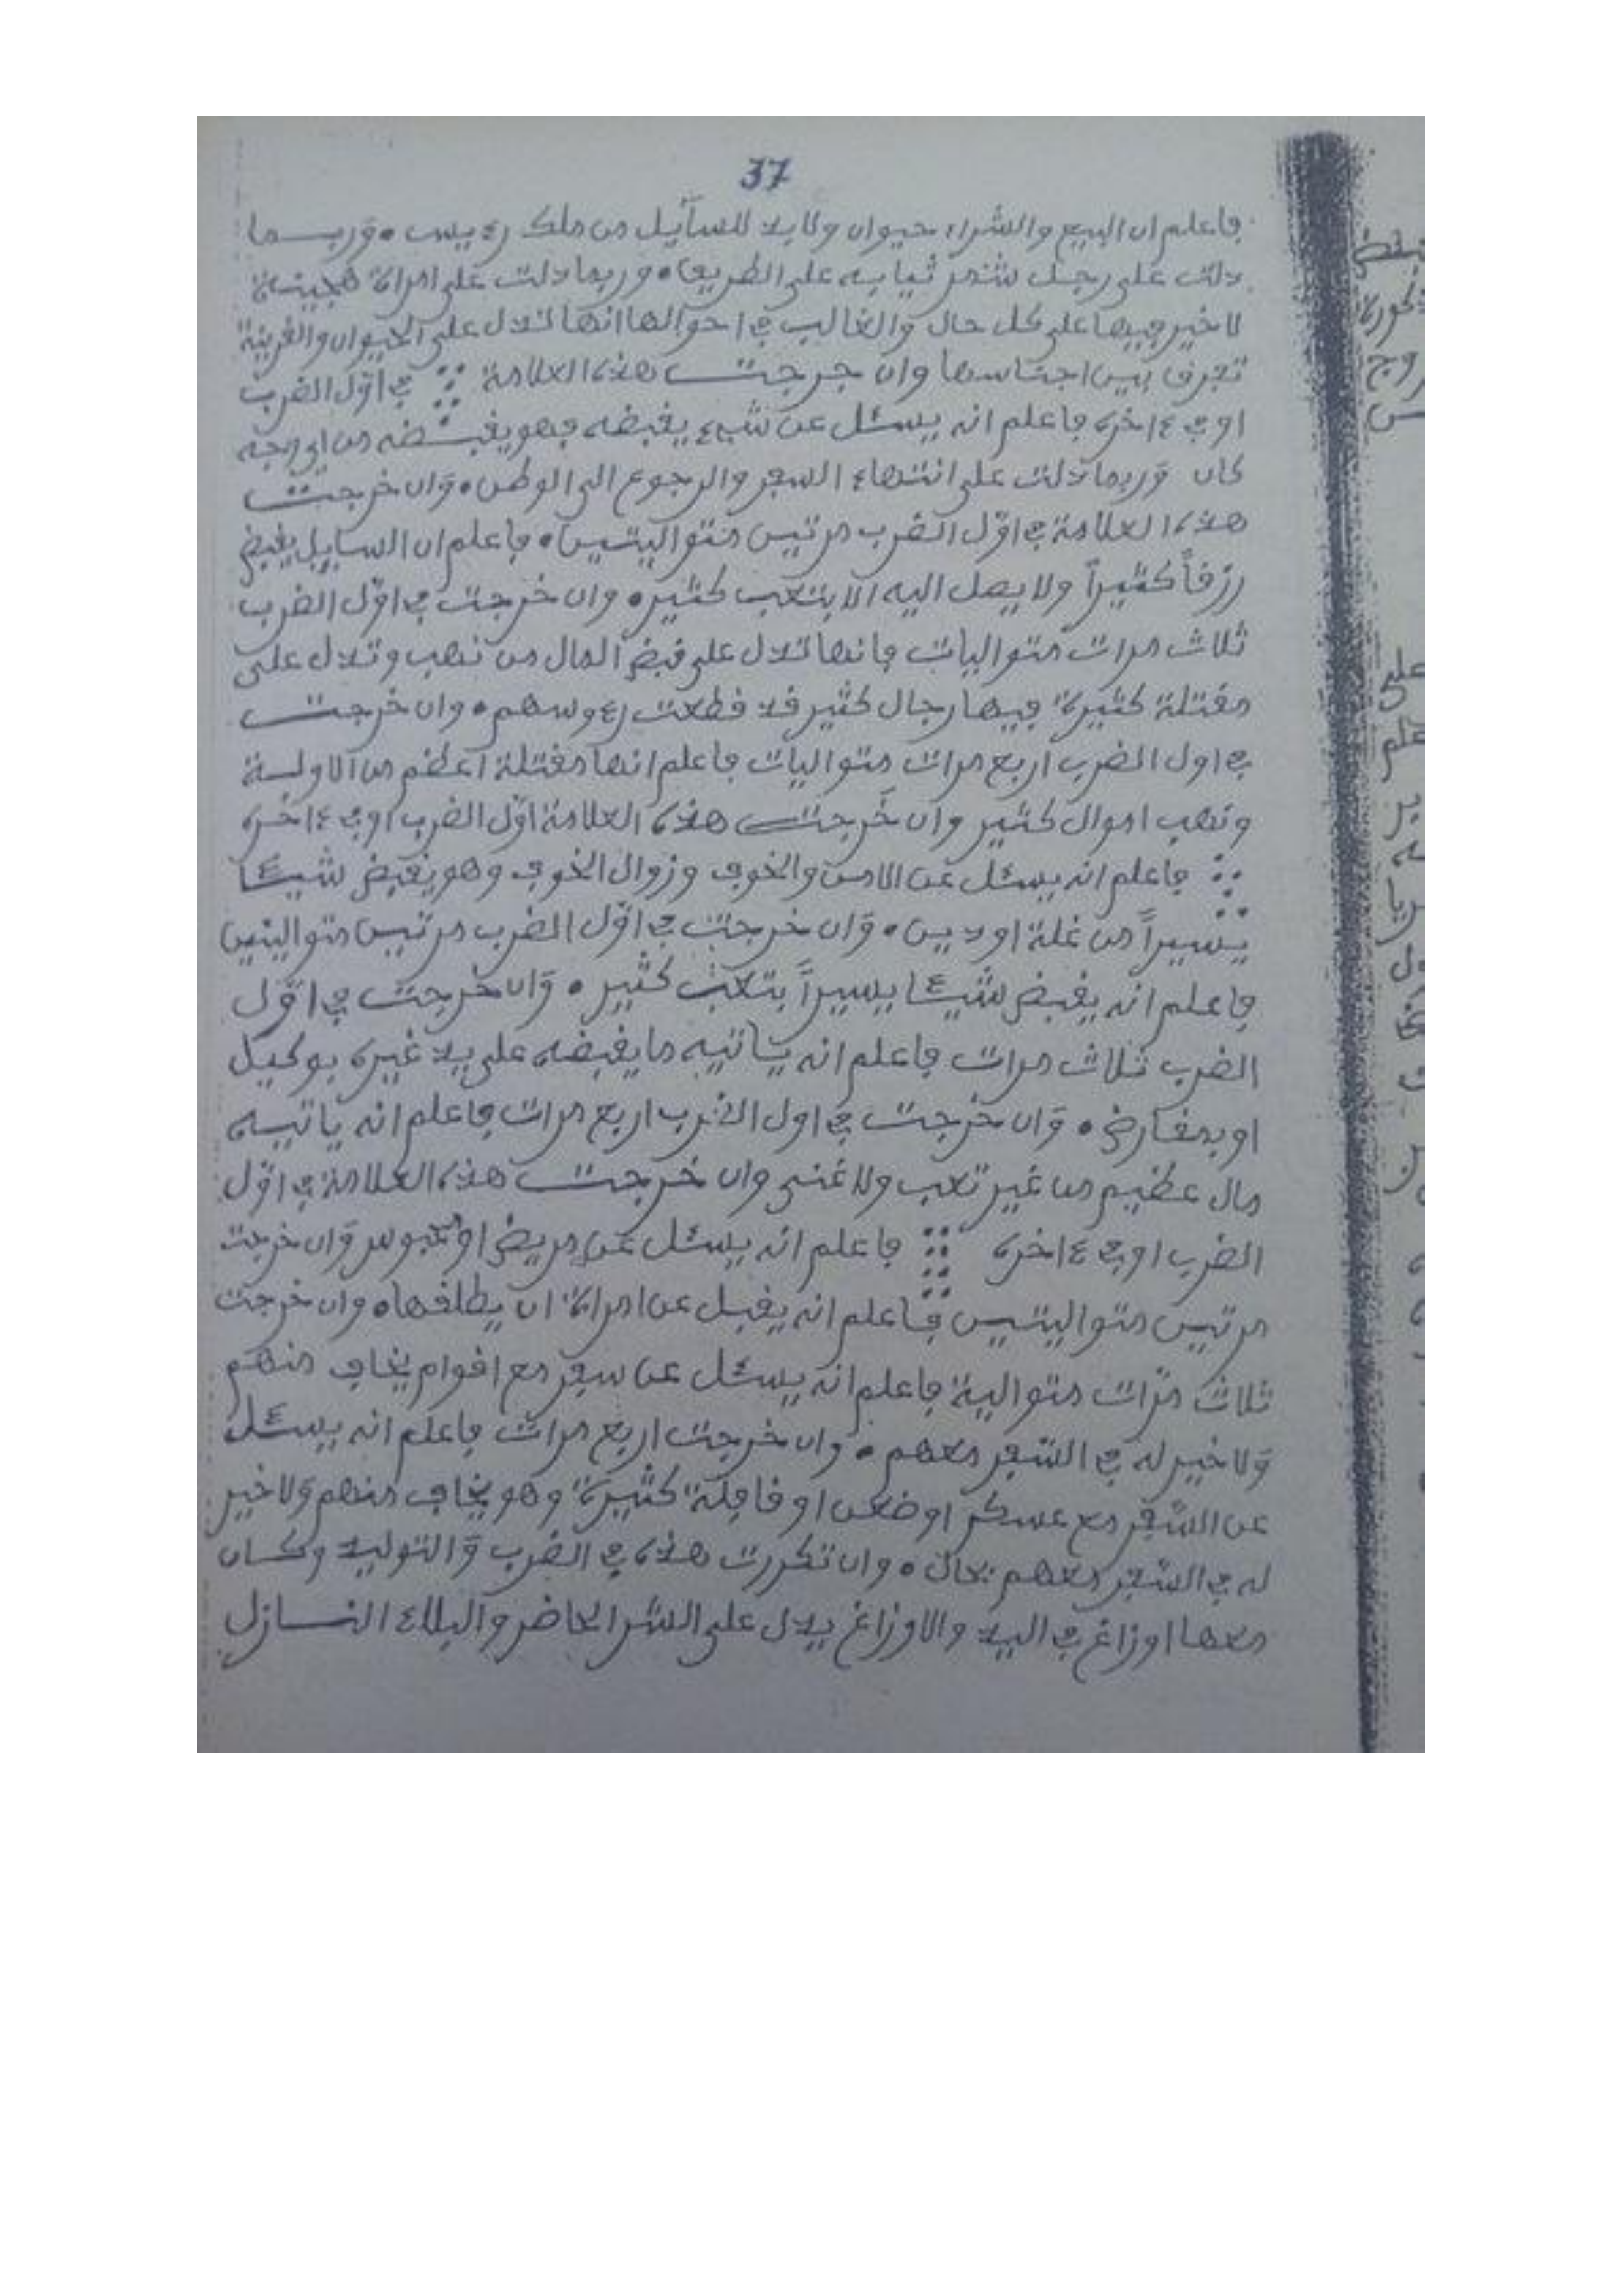 37
فاعلم ان البيع والشراء حيوان ولا بد للسآئل من ملك رءيس • وربما
دلت على رجل شمر ثيابه على الطريق • وربما دلت على امراة هجينة
لا خير فيها على كل حال والغالب في احوالها انها تدل على الحيوان والقرينة
تفرق بين اجناسها وان خرجت هذه العلامة في اوّل الضرب
او في ءاخره فاعلم انه يسئل عن شيء يقبضه فهو يقبضه من اي وجه
كان وربما دلت على انتهاء السفر والرجوع الى الوطن • وان خرجت
هذه العلامة في اوّل الضرب مرتين متواليتين • فاعلم ان السايل يقبض
رزقاً كثيراً ولا يصل اليه الا بتعب كثير • وان خرجت في اوّل الضرب
ثلاث مرات متواليات فانها تدل على قبض المال من نهب وتدل على
مقتلة كثيرة فيها رجال كثير قد قطعت رءوسهم • وان خرجت
في اول الضرب اربع مرات متواليات فاعلم انها مقتلة اعظم من الاولـة
ونهب اموال كثير وان خرجت هذه العلامة اوّل الضرب او في ءاخره
فاعلم انه يسئل عن الامن والخوف وزوال الخوف وهو يقبض شيئا
يسيراً من غلة او دين • وان خرجت في اوّل الضرب مرتين متواليتين
فاعلم انه يقبض شيئا يسيراً بتعب كثير • وان خرجت في اوّل
الضرب ثلاث مرات فاعلم انه ياتيه ما يقبضه على يد غيره بوكيل
او بمقارض • وان خرجت في اول الضرب اربع مرات فاعلم انه ياتيه
مال عظيم من غير تعب ولا غنى وان خرجت هذه العلامة في اوّل
الضرب او في ءاخره فاعلم انه يسئل عن مريض او محبوس وان خرجت
مرتين متواليتين فاعلم انه يقبل عن امراة ان يطلقها • وان خرجت
ثلاث مرّات متوالية فاعلم انه يسئل عن سفر مع اقوام يخاف منهم
ولا خير له في السّفر معهم • وان خرجت اربع مرات فاعلم انه يسئل
عن السّفر مع عسكر او ضعن او قافلة كثيرة وهو يخاف منهم ولا خير
له في السّفر معهم بحال • وان تكررت هذه في الضرب والتوليد وكان
معها اوزاغ في اليد والاوزاغ يدل على الشر الحاضر والبلاء النازل